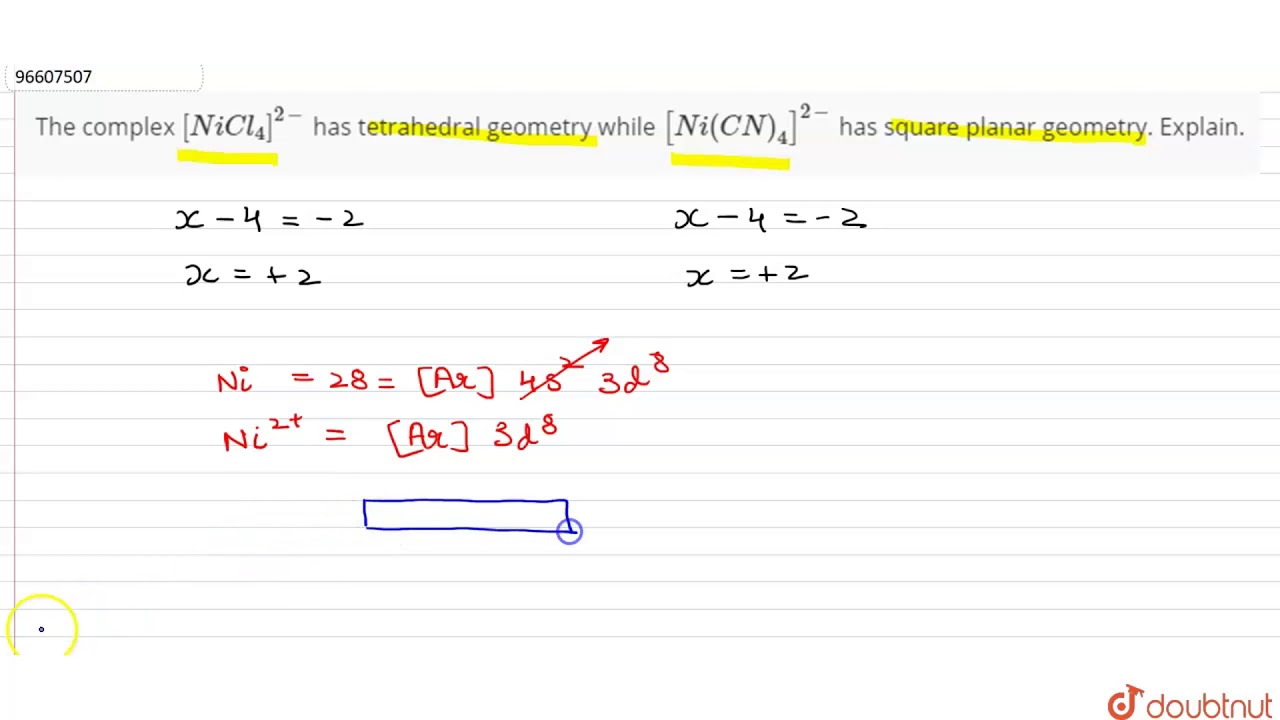 96607507
The complex [NiCl₄]²⁻ has tetrahedral geometry while [Ni(CN)₄]²⁻ has square planar geometry. Explain.
x - 4 = - 2
x - 4 = - 2
x = + 2
x = + 2
Ni = 28 = [Ar] 4s² 3d⁸
Ni²⁺ = [Ar] 3d⁸
doubtnut